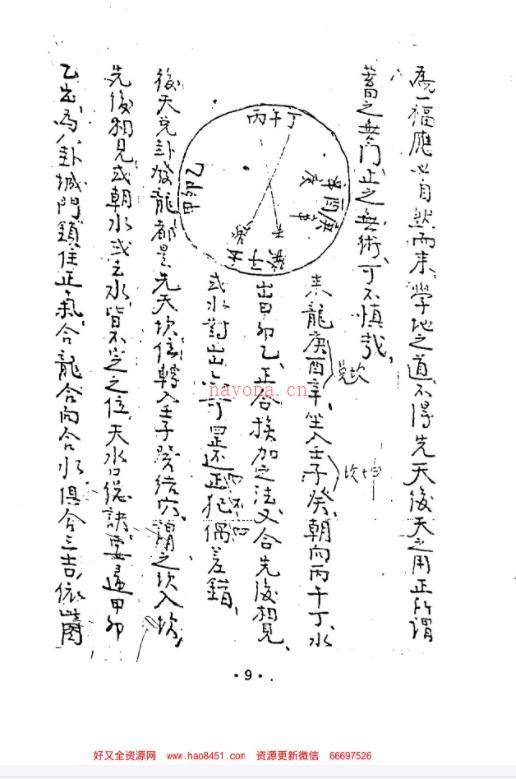 為一福應必自然而来學地之道不得先天後天之用正所謂
蓄之無門止之無術可不慎哉
来龍庚酉辛坐入壬子癸朝向丙午丁水
出甲卯乙正合挨加之法又合先後相見
或水對出
正犯偶差錯
後天兌卦發龍都是先天坎位轉入壬子癸結穴謂之坎入坎
先後相見或朝水或去水皆不空之位天水口從訣要逢甲卯
乙出為八卦城門鎖住正氣合龍合向合水俱合三吉依
丙午丁
庚
酉
辛
乙卯甲
壬子癸
坎
兌
nayona.cn
·9·
好又全资源网 www.hao8451.com 资源更新微信 66697526